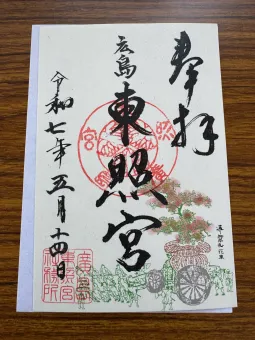 奉拝
広島
東照宮
令和七年五月十四日
廣島
東照宮
社務所